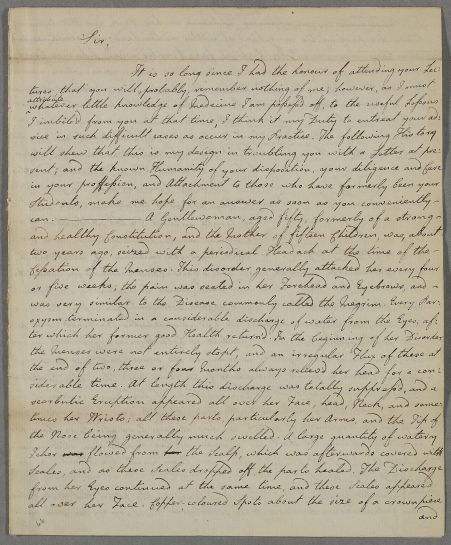 Sir,
It is so long since I had the honour of attending your Lec-
tures, that you will, probably, remember nothing of me; however, as I must
attribute
whatever little knowledge of Medecine I am possess'd off, to the useful Lessons
I imbib'd from you at that time, I think it my Duty to entreat your ad-
vice in such difficult cases as occur in my Practice. The following History
will shew that this is my design in troubling you with a Letter at pre-
sent; and the known Humanity of your disposition, your diligence and Care
in your profession, and Attachment to those who have formerly been your
Students, make me hope for an answer as soon as you conveniently
can. — A Gentlewoman, aged fifty, formerly of a strong
and healthy Constitution, and the Mother of fifteen Children, was, about
two years ago, seized with a periodical Headach at the time of the
Cessation of the Menses. This disorder generally attacked her every four
or five weeks; the pain was seated in her Forehead and Eyebrows, and
was very similar to the Disease commonly called the Megrim. Every Par-
oxysm terminated in a considerable discharge of water from the Eyes, af-
ter which her former good Health return'd. In the beginning of her Disorder
the Menses were not entirely stopt, and an irregular Flux of these at
the end of two, three or four Months always reliev'd her head for a con-
siderable time. At length this discharge was totally suppress'd, and a
scorbutic Eruption appeared all over her Face, head, Neck, and some-
times her Wrists; all these parts, particularly her Arms, and the Tip of
the Nose being generally much swelled. A large quantity of watery
Ichor flowed from the scalp, which was afterwards covered with
Scales, and as these Scales dropped off the parts healed. The Discharge
from her Eyes continued at the same time, and these Scales appeared
all over her Face. Copper-coloured Spots about the size of a crown piece
and